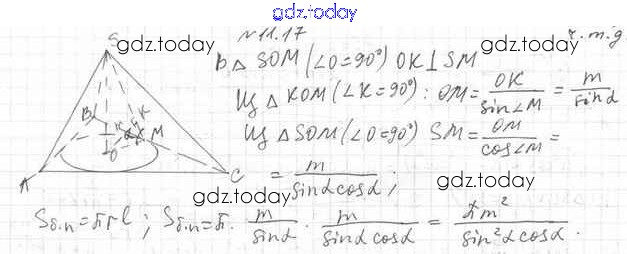 gdz.today
№11.17
gdz.today gdz.today ч.т.д
В △ SOM (∠O=90°) OK ⊥ SM
Из △ KOM (∠K=90°): OM = OK/sin∠M = m/sinα
Из △ SOM (∠O=90°) SM = OM/cos∠M =
= m/(sinα cosα);
S
B K K M
O
A C
gdz.today gdz.today
Sб.п = πrl; Sб.п = π · m/sinα · m/(sinα cosα) = πm²/(sin²α cosα).
gdz.today